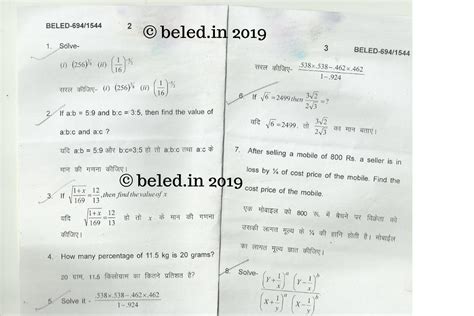 BELED-694/1544 2
© beled.in 2019
1. Solve-
(i) (256)^¾ (ii) (1/16)
सरल कीजिए- (i) (256)^¾ (ii) (1/16)
2. If a:b = 5:9 and b:c = 3:5, then find the value of
a:b:c and a:c ?
यदि a:b = 5:9 और b:c=3:5 हो तो a:b:c तथा a:c के
मान की गणना कीजिए।
© beled.in 2019
3. If √(1+x/169) = 12/13, then find the value of x
यदि √(1+x/169) = 12/13 हो तो x के मान की गणना
कीजिए।
4. How many percentage of 11.5 kg is 20 grams?
20 ग्राम, 11.5 किलोग्राम का कितने प्रतिशत है?
5. Solve it - .538×.538-.462×.462/1-.924
3 BELED-694/1544
सरल कीजिए- .538×.538-.462×.462/1-.924
6. If √6 = 2499 then 3√2/2√3 = ?
यदि √6 = 2499. तो 3√2/2√3 का मान बताए।
7. After selling a mobile of 800 Rs. a seller is in
loss by ¼ of cost price of the mobile. Find the
cost price of the mobile.
एक मोबाइल को 800 रू. में बेचने पर विक्रेता को
उसकी लागत मूल्य के ¼ की हानि होती है। मोबाईल
का लागत मूल्य ज्ञात कीजिए।
8. Solve-
(Y+1/x)^a (Y-1/x)^b
(X+1/y)^a (X-1/y)^b